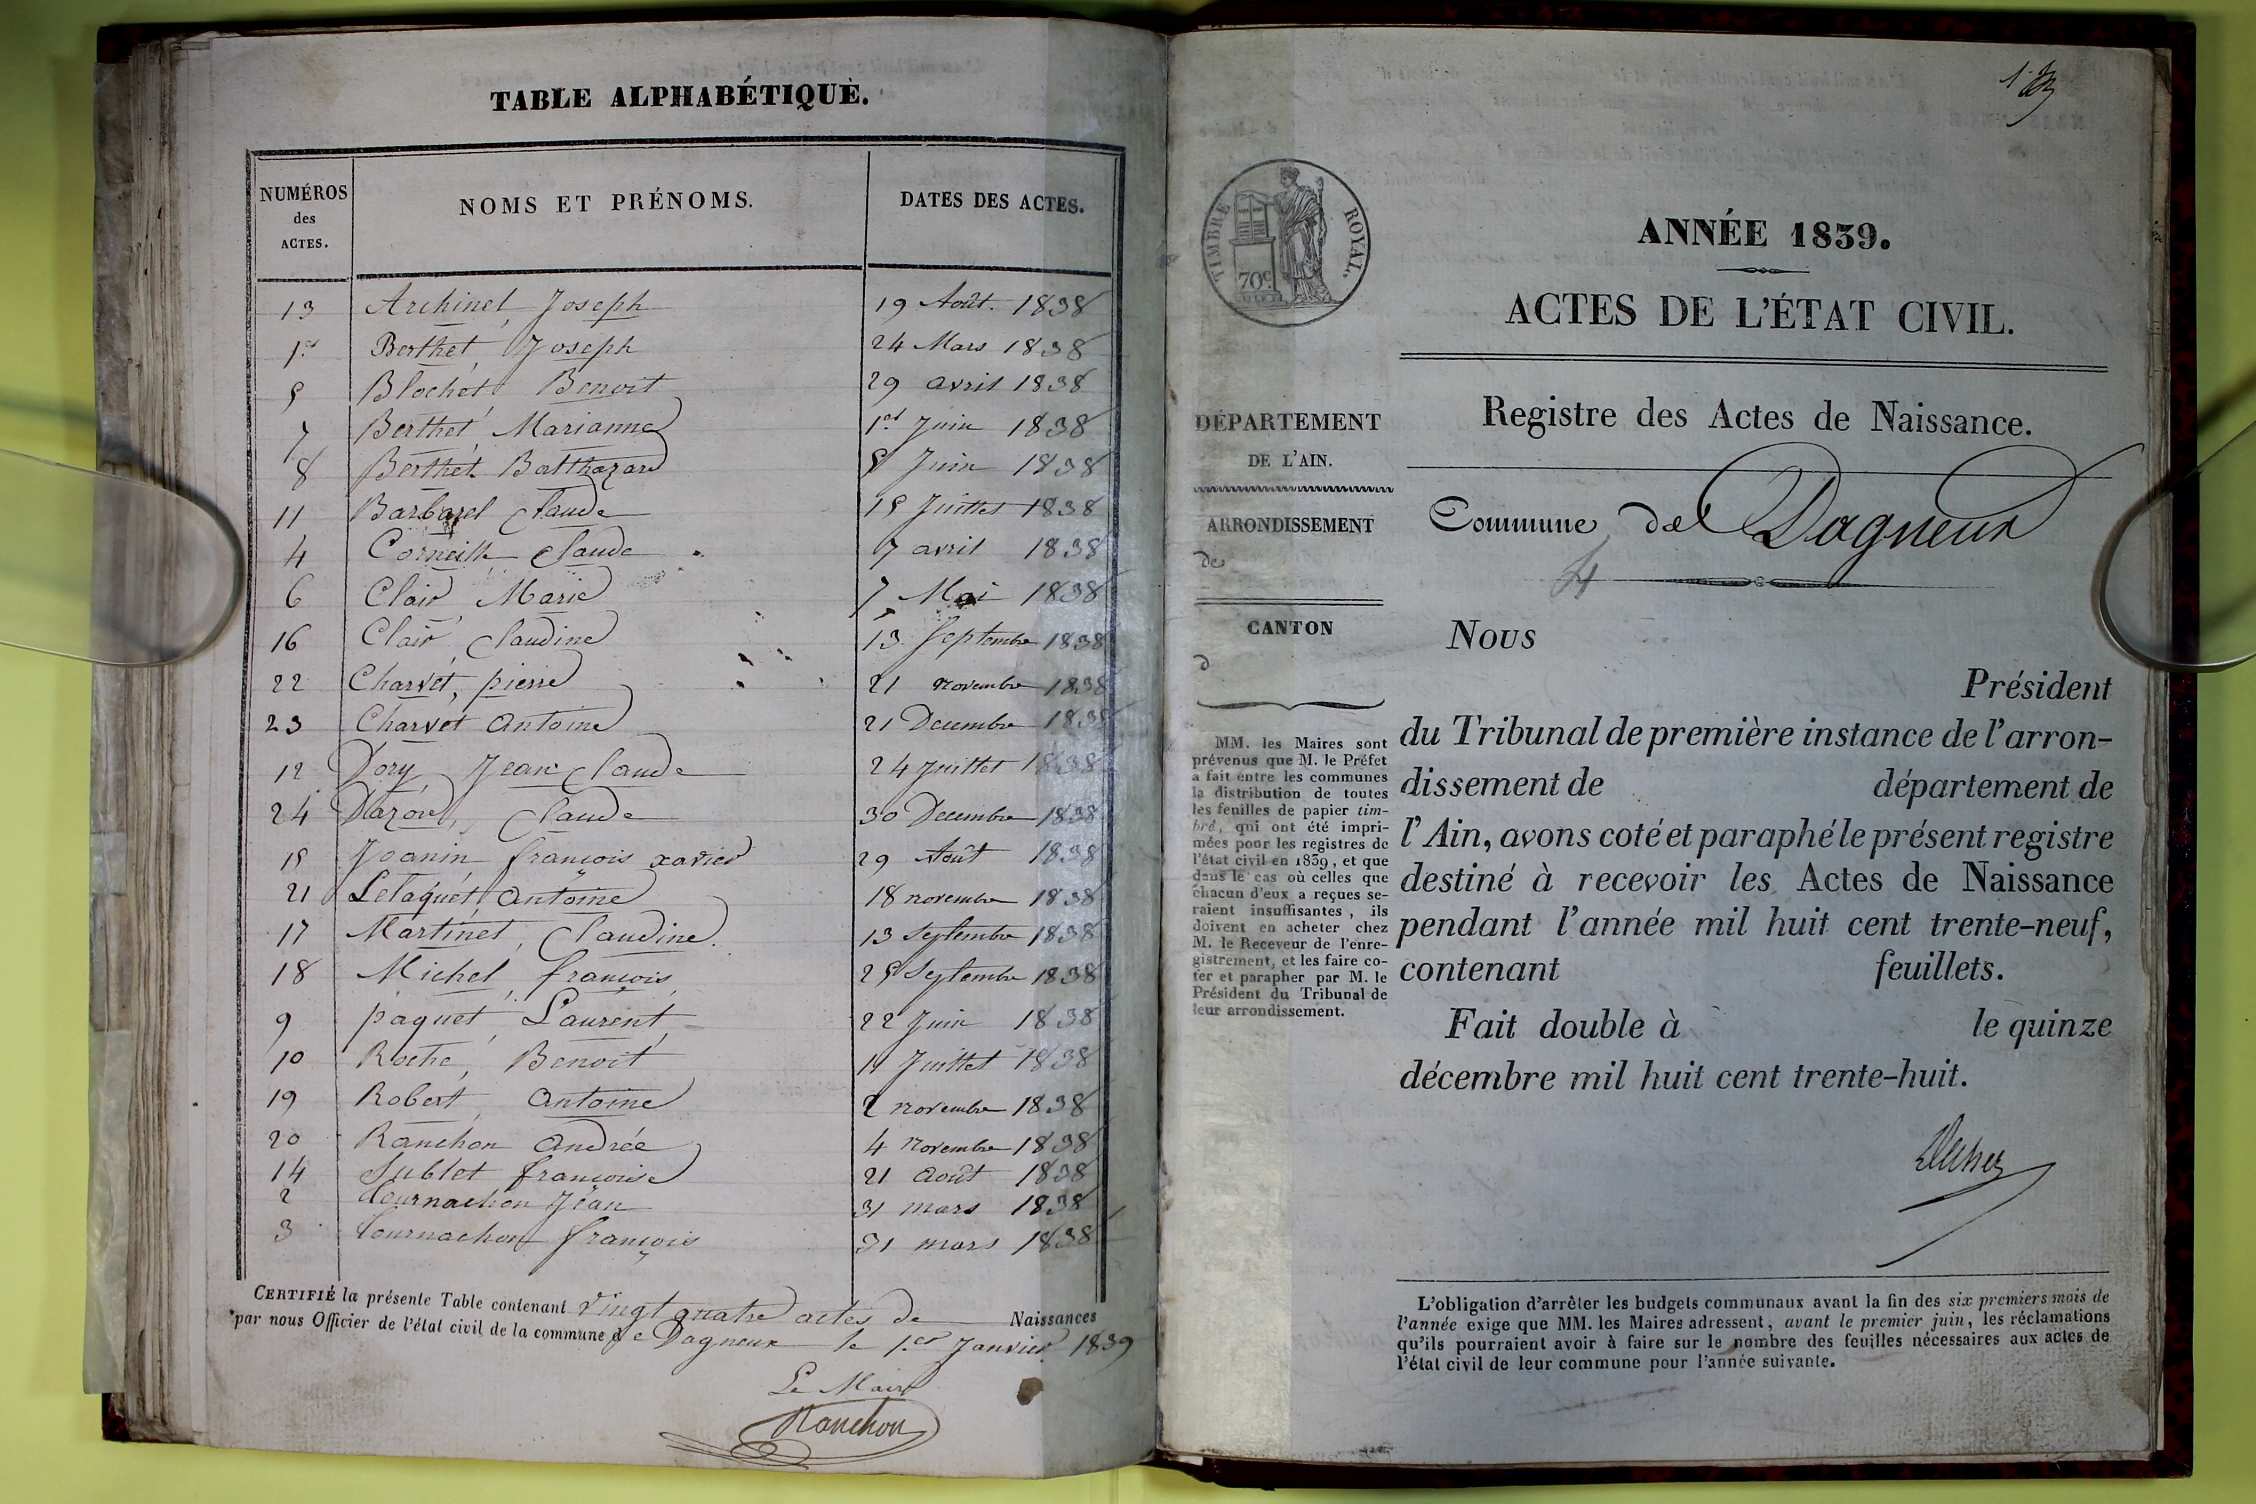 TABLE ALPHABÉTIQUE.
NUMÉROS des ACTES. NOMS ET PRÉNOMS. DATES DES ACTES.
13 Archinet, Joseph 19 Août. 1838
1er Berthet, Joseph 24 Mars 1838
5 Blochet Benoit 29 avril 1838
7 Berthet Marianne 1er Juin 1838
8 Berthet Balthazard 5 Juin 1838
11 Barbarel Claude 15 Juillet 1838
4 Corneille Claude 7 avril 1838
6 Clair Marie 7 Mai 1838
16 Clair Claudine 13 Septembre 1838
22 Charvet, pierre 21 novembre 1838
23 Charvet antoine 21 Decembre 1838
12 Dory Jean Claude 24 Juillet 1838
24 Claude 30 Decembre 1838
15 Joanin françois xavier 29 Août 1838
21 Letaquet antoine 18 novembre 1838
17 Martinet, Claudine. 13 Septembre 1838
18 Michel, françois 25 Septembre 1838
9 paquet, Laurent 22 Juin 1838
10 Roche, Benoit 11 Juillet 1838
19 Robert, antoine 2 novembre 1838
20 Ranchon andrée 4 novembre 1838
14 Sublet françoise 21 août 1838
2 tournachon Jean 31 mars 1838
3 tournachon françois 31 mars 1838
CERTIFIÉ la présente Table contenant vingt quatre actes de Naissances
par nous Officier de l'état civil de la commune de Dagneux le 1.er Janvier 1839
Le Maire
Ranchon
TIMBRE ROYAL.
70c
ANNÉE 1839.
ACTES DE L'ÉTAT CIVIL.
Registre des Actes de Naissance.
Commune de Dagneux
DÉPARTEMENT
DE L'AIN.
ARRONDISSEMENT
de
CANTON
d
MM. les Maires sont
prévenus que M. le Préfet
a fait entre les communes
la distribution de toutes
les feuilles de papier tim-
bré, qui ont été impri-
mées pour les registres de
l'état civil en 1839, et que
dans le cas où celles que
chacun d'eux a reçues se-
raient insuffisantes, ils
doivent en acheter chez
M. le Receveur de l'enre-
gistrement, et les faire co-
ter et parapher par M. le
Président du Tribunal de
leur arrondissement.
Nous
Président
du Tribunal de première instance de l'arron-
dissement de département de
l'Ain, avons coté et paraphé le présent registre
destiné à recevoir les Actes de Naissance
pendant l'année mil huit cent trente-neuf,
contenant feuillets.
Fait double à le quinze
décembre mil huit cent trente-huit.
L'obligation d'arrêter les budgets communaux avant la fin des six premiers mois de
l'année exige que MM. les Maires adressent, avant le premier juin, les réclamations
qu'ils pourraient avoir à faire sur le nombre des feuilles nécessaires aux actes de
l'état civil de leur commune pour l'année suivante.